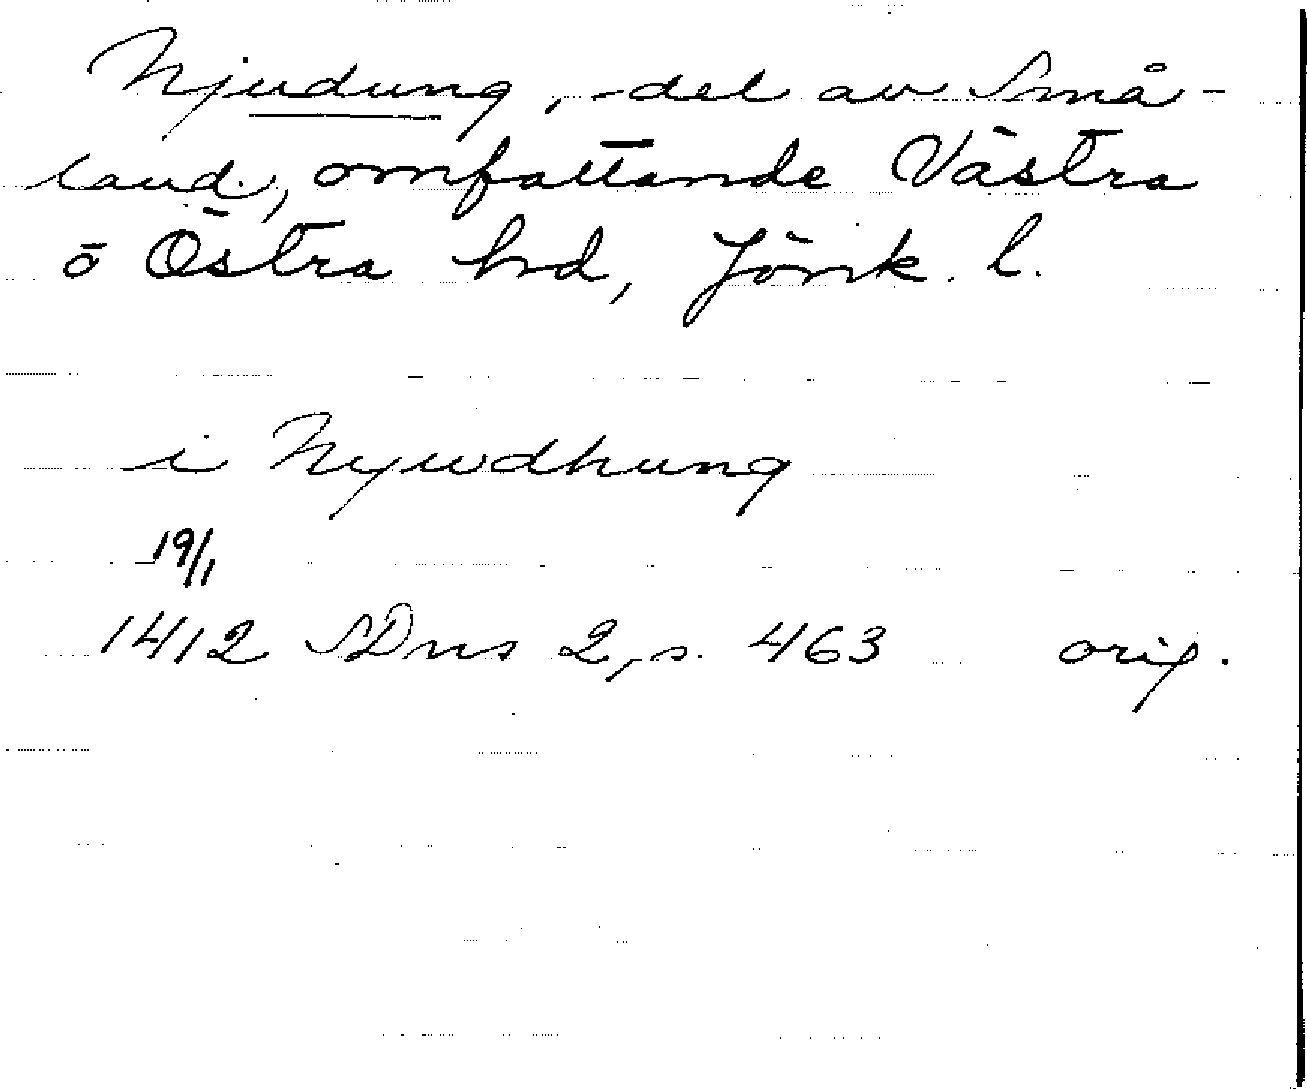 Njudung, del av Små-
land, omfattande Västra
o Östra hd, Jönk. l.
i Nywdhung
19/1
1412 SDns 2, s. 463 orig.